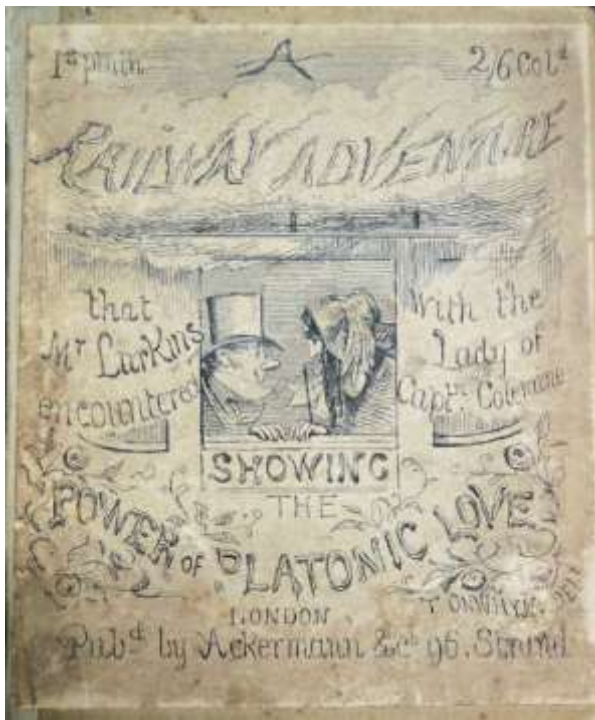 1s plain 2/6 Cold
A
RAILWAY ADVENTURE
that
Mr Larkins
encountered
With the
Lady of
Captn. Coleraine
SHOWING
THE
POWER OF PLATONIC LOVE
T ONWHYN DELT
LONDON
Pubd by Ackermann & Co 96. Strand